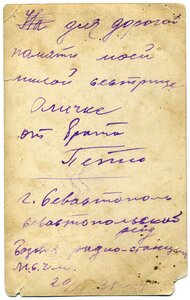 для дорогой
памяти моей
милой сестрице
Оличке
от брата
Петю
г. Севастополь
Севастопольский
рейд
Водная радио-станция
М.С.Ч.М.
20